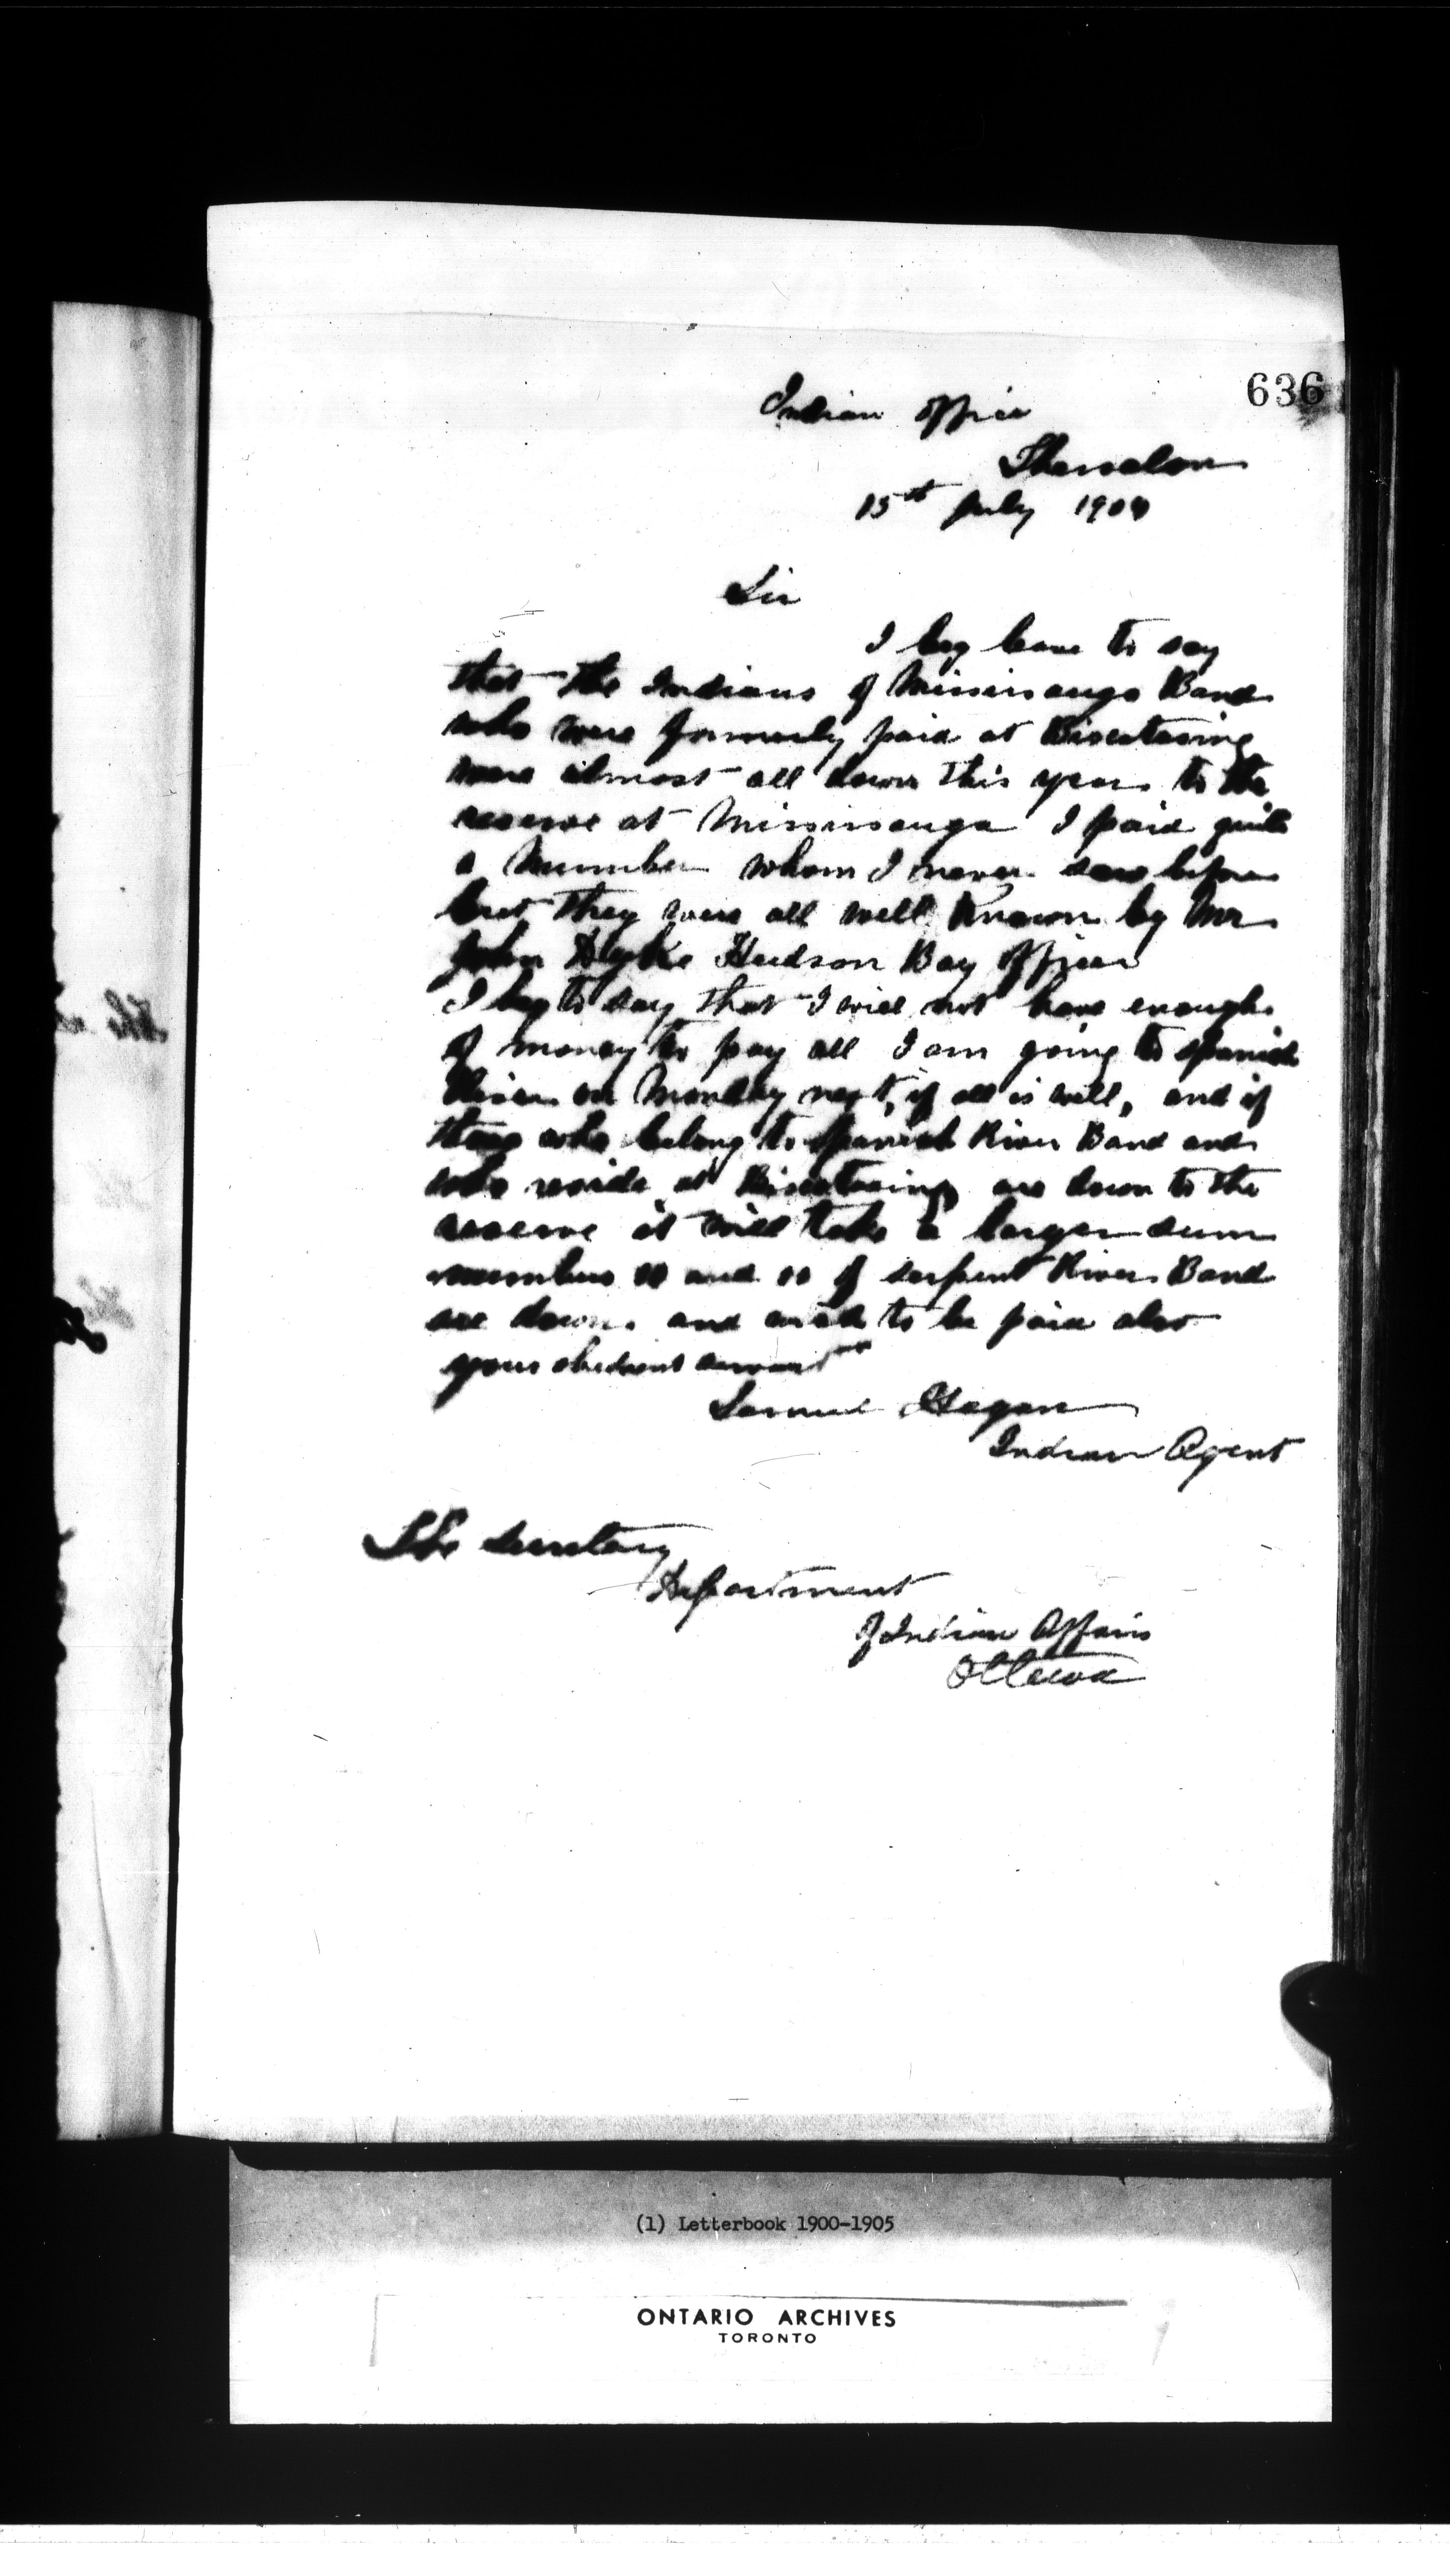 636
Indian Office
Thessalon
15th July 1904
Sir
I beg leave to say
that the Indians of Mississauga Band
who were formerly paid at Biscotasing
were almost all down this year to the
reserve at Mississauga I paid quite
a Number whom I never saw before
but they were all well Known by Mr
John Hudson Bay Officer
I beg to say that I will not have enough
of money to pay all I am going to Spanish
River on Monday next, if all is well, and if
those who belong to Spanish River Band and
who reside at Biscotasing are down to the
reserve it will take a larger sum
numbers and of Serpent River Band
are down and to be paid also
your obedient servant
Samuel Hagan
Indian Agent
The Secretary
Department
of Indian Affairs
Ottawa
(1) Letterbook 1900-1905
ONTARIO ARCHIVES
TORONTO